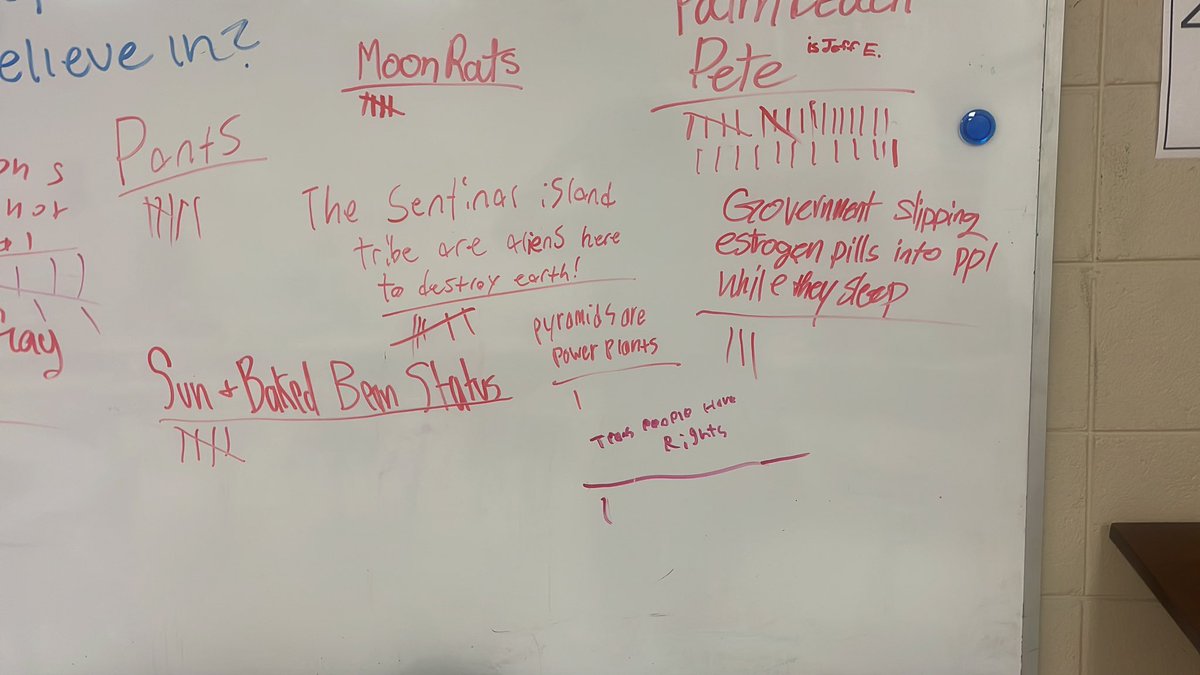 elieve in?
Moon Rats
Palm Beach
Pete is Jeff E.
Pants
on s
nor
The Sentinal island
tribe are aliens here
to destroy earth!
Government slipping
estrogen pills into ppl
while they sleep
pyramids are
power plants
Gay
Sun + Baked Bean Status
Trans people Have
Rights